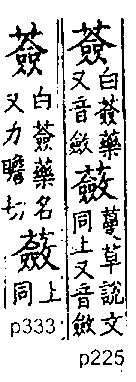 薟白薟藥又音斂蘞蔓草說文同上又音斂
p225
薟白薟藥名又力瞻切蘞上同
p333